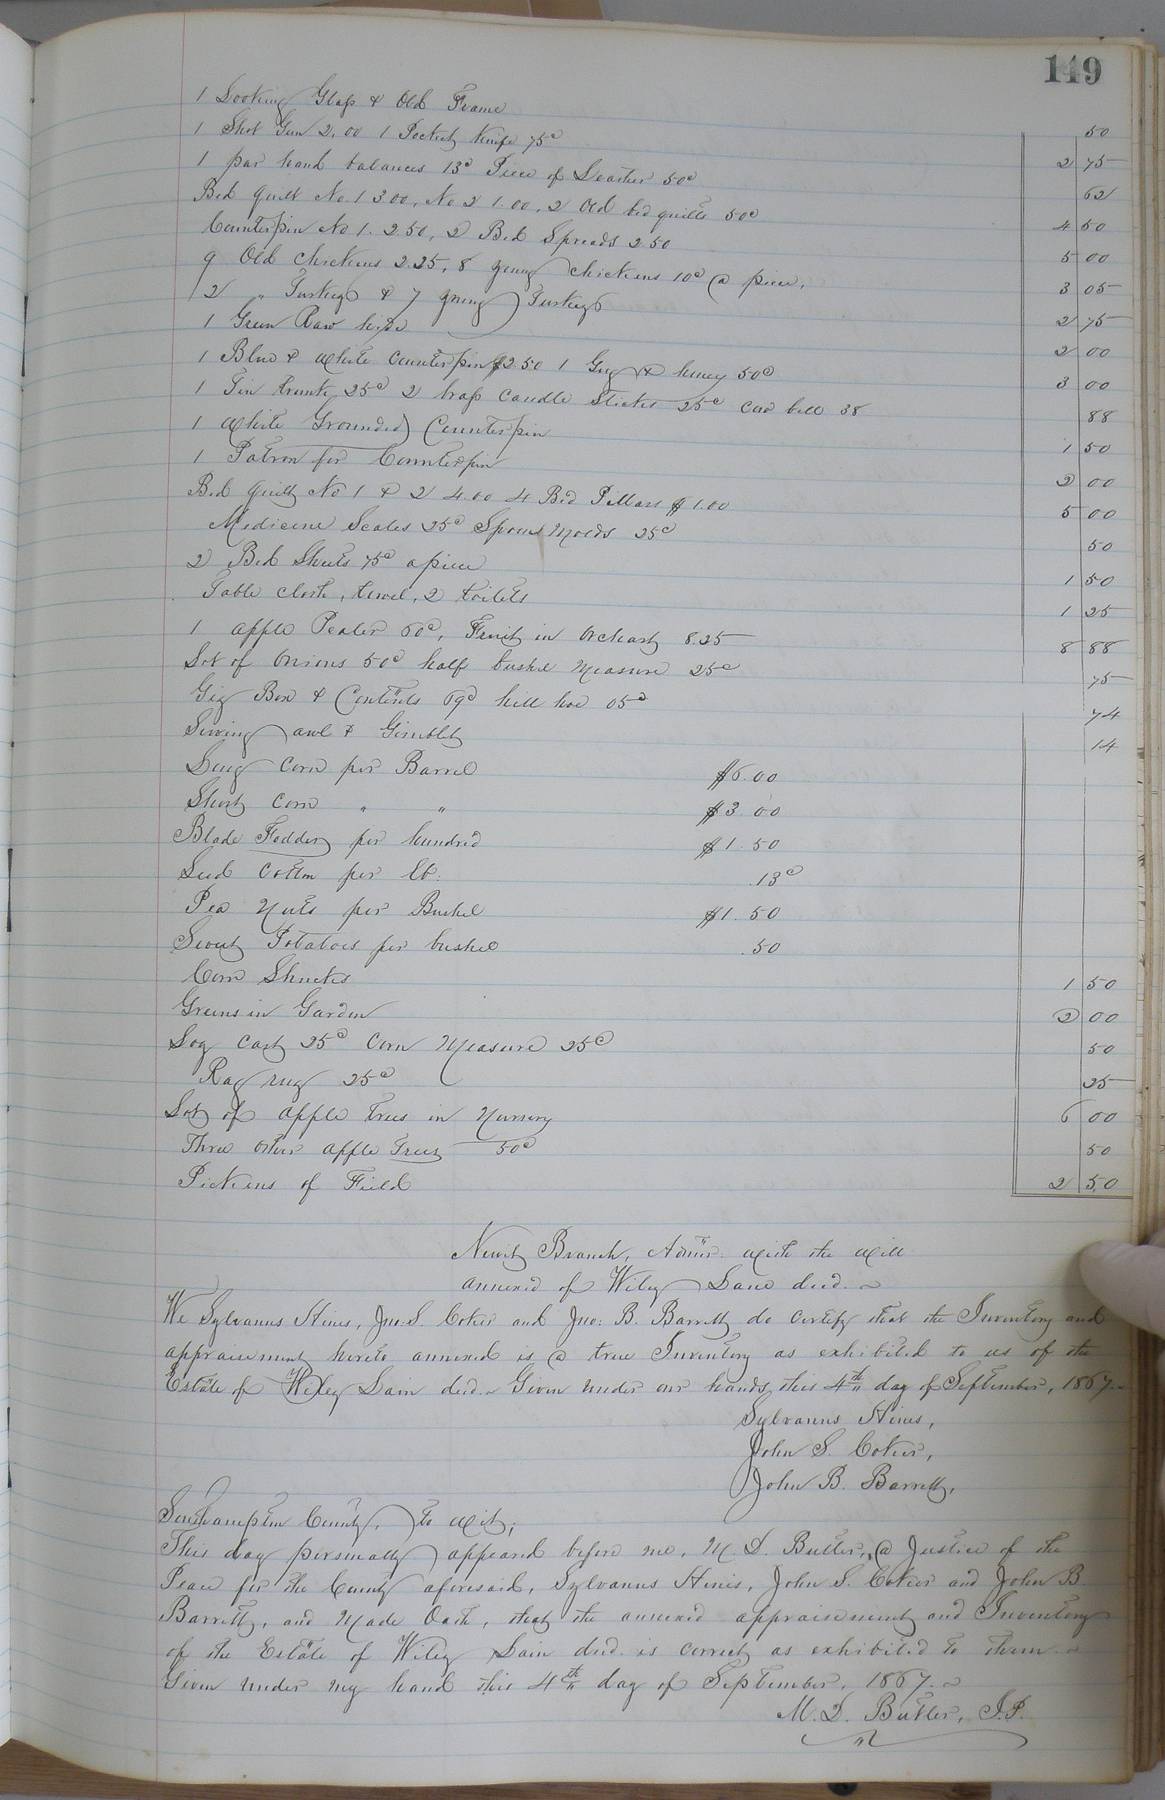 149
1 Looking Glass & Old Frame 50
1 Shot Gun 2.00 1 Pocket Knife 75c 2 75
1 par hand balances 13c Piece of Leather 50c 62
Bed quilt No. 1 3.00, No 2 1.00, 2 Old bed quilts 50c 4 50
Counterpin No 1. 2.50, 2 Bed Spreads 2 50 5 00
9 Old chickens 2.25, 8 young chickens 10c a piece, 3 05
2 " Turkeys & 7 young Turkeys 2 75
1 Green Raw hide 2 00
1 Blue & White Counterpin $2.50 1 Gug & honey 50c 3 00
1 Tin trunk, 25c 2 brass candle Sticks 25c cow bell 38 88
1 White Grounded Counterpin 1 50
1 Patron for Counterpin 2 00
Bed quilts No 1 & 2 4.00 4 Bed Pillars $1.00 5 00
Medicine Scales 25c Spoon Molds 25c 50
2 Bed Sheets 75c a piece 1 50
Table cloth, towel, 2 toilets 1 25
1 apple Pealer 60c, Fruit in Orchart 8.25 8 88
Lot of Onions 50c half bushel Measure 25c 75
Gig Box & Contents 69c hill hoe 05c 74
Sewing awl & Gimblet 14
Long Corn per Barrel $6.00
Short Corn " " $3.00
Blade Fodder per hundred $1.50
Seed Cotton per lb. .13c
Pea Nuts per Bushel $1.50
Sweet Potatoes per bushel .50
Corn Shucks 1 50
Greens in Garden 2 00
Log Cart 25c Corn Measure 25c 50
Rag rug 25c 25
Lot of apple trees in Nursery 6 00
Three other apple Trees 50c 50
Pickens of Field 2 50
Newit Branch, Admr. with the will
annexed of Wiley Lain decd.
We Sylvanus Hines, Jno. S. Coker and Jno: B. Barrett do certify that the Inventory and
appraisement hereto annexed is a true Inventory as exhibited to us of the
Estate of Wiley Lain decd. Given under our hands, this 4th day of September, 1867.
Sylvanus Hines,
John S. Coker,
John B. Barrett,
Southampton County, To Wit;
This day personally appeared before me, M. D. Butler, a Justice of the
Peace for the County aforesaid, Sylvanus Hines, John S. Coker and John B
Barrett, and Made Oath, that the annexed appraisement and Inventory
of the Estate of Wiley Lain decd. is correct as exhibited to them.
Given under my hand this 4th day of September, 1867.
M. D. Butler, J.P.